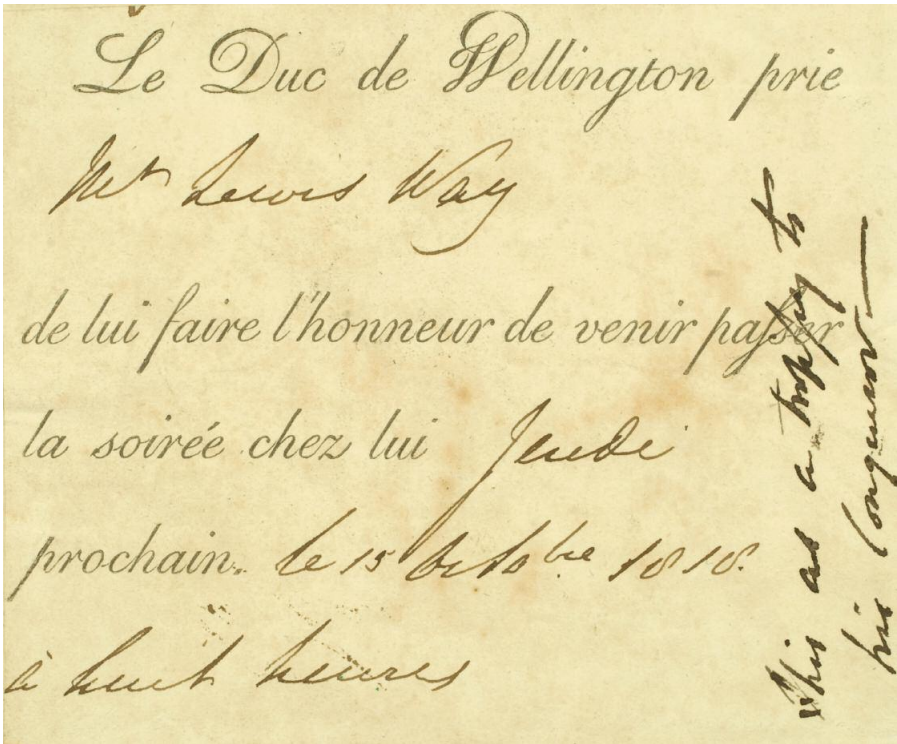 Le Duc de Wellington prie
Mr. Lewis Way
de lui faire l'honneur de venir passer
la soirée chez lui Jeudi
prochain. le 15 Octobre 1818.
à huit heures
This as a trophy to
his Conqueror